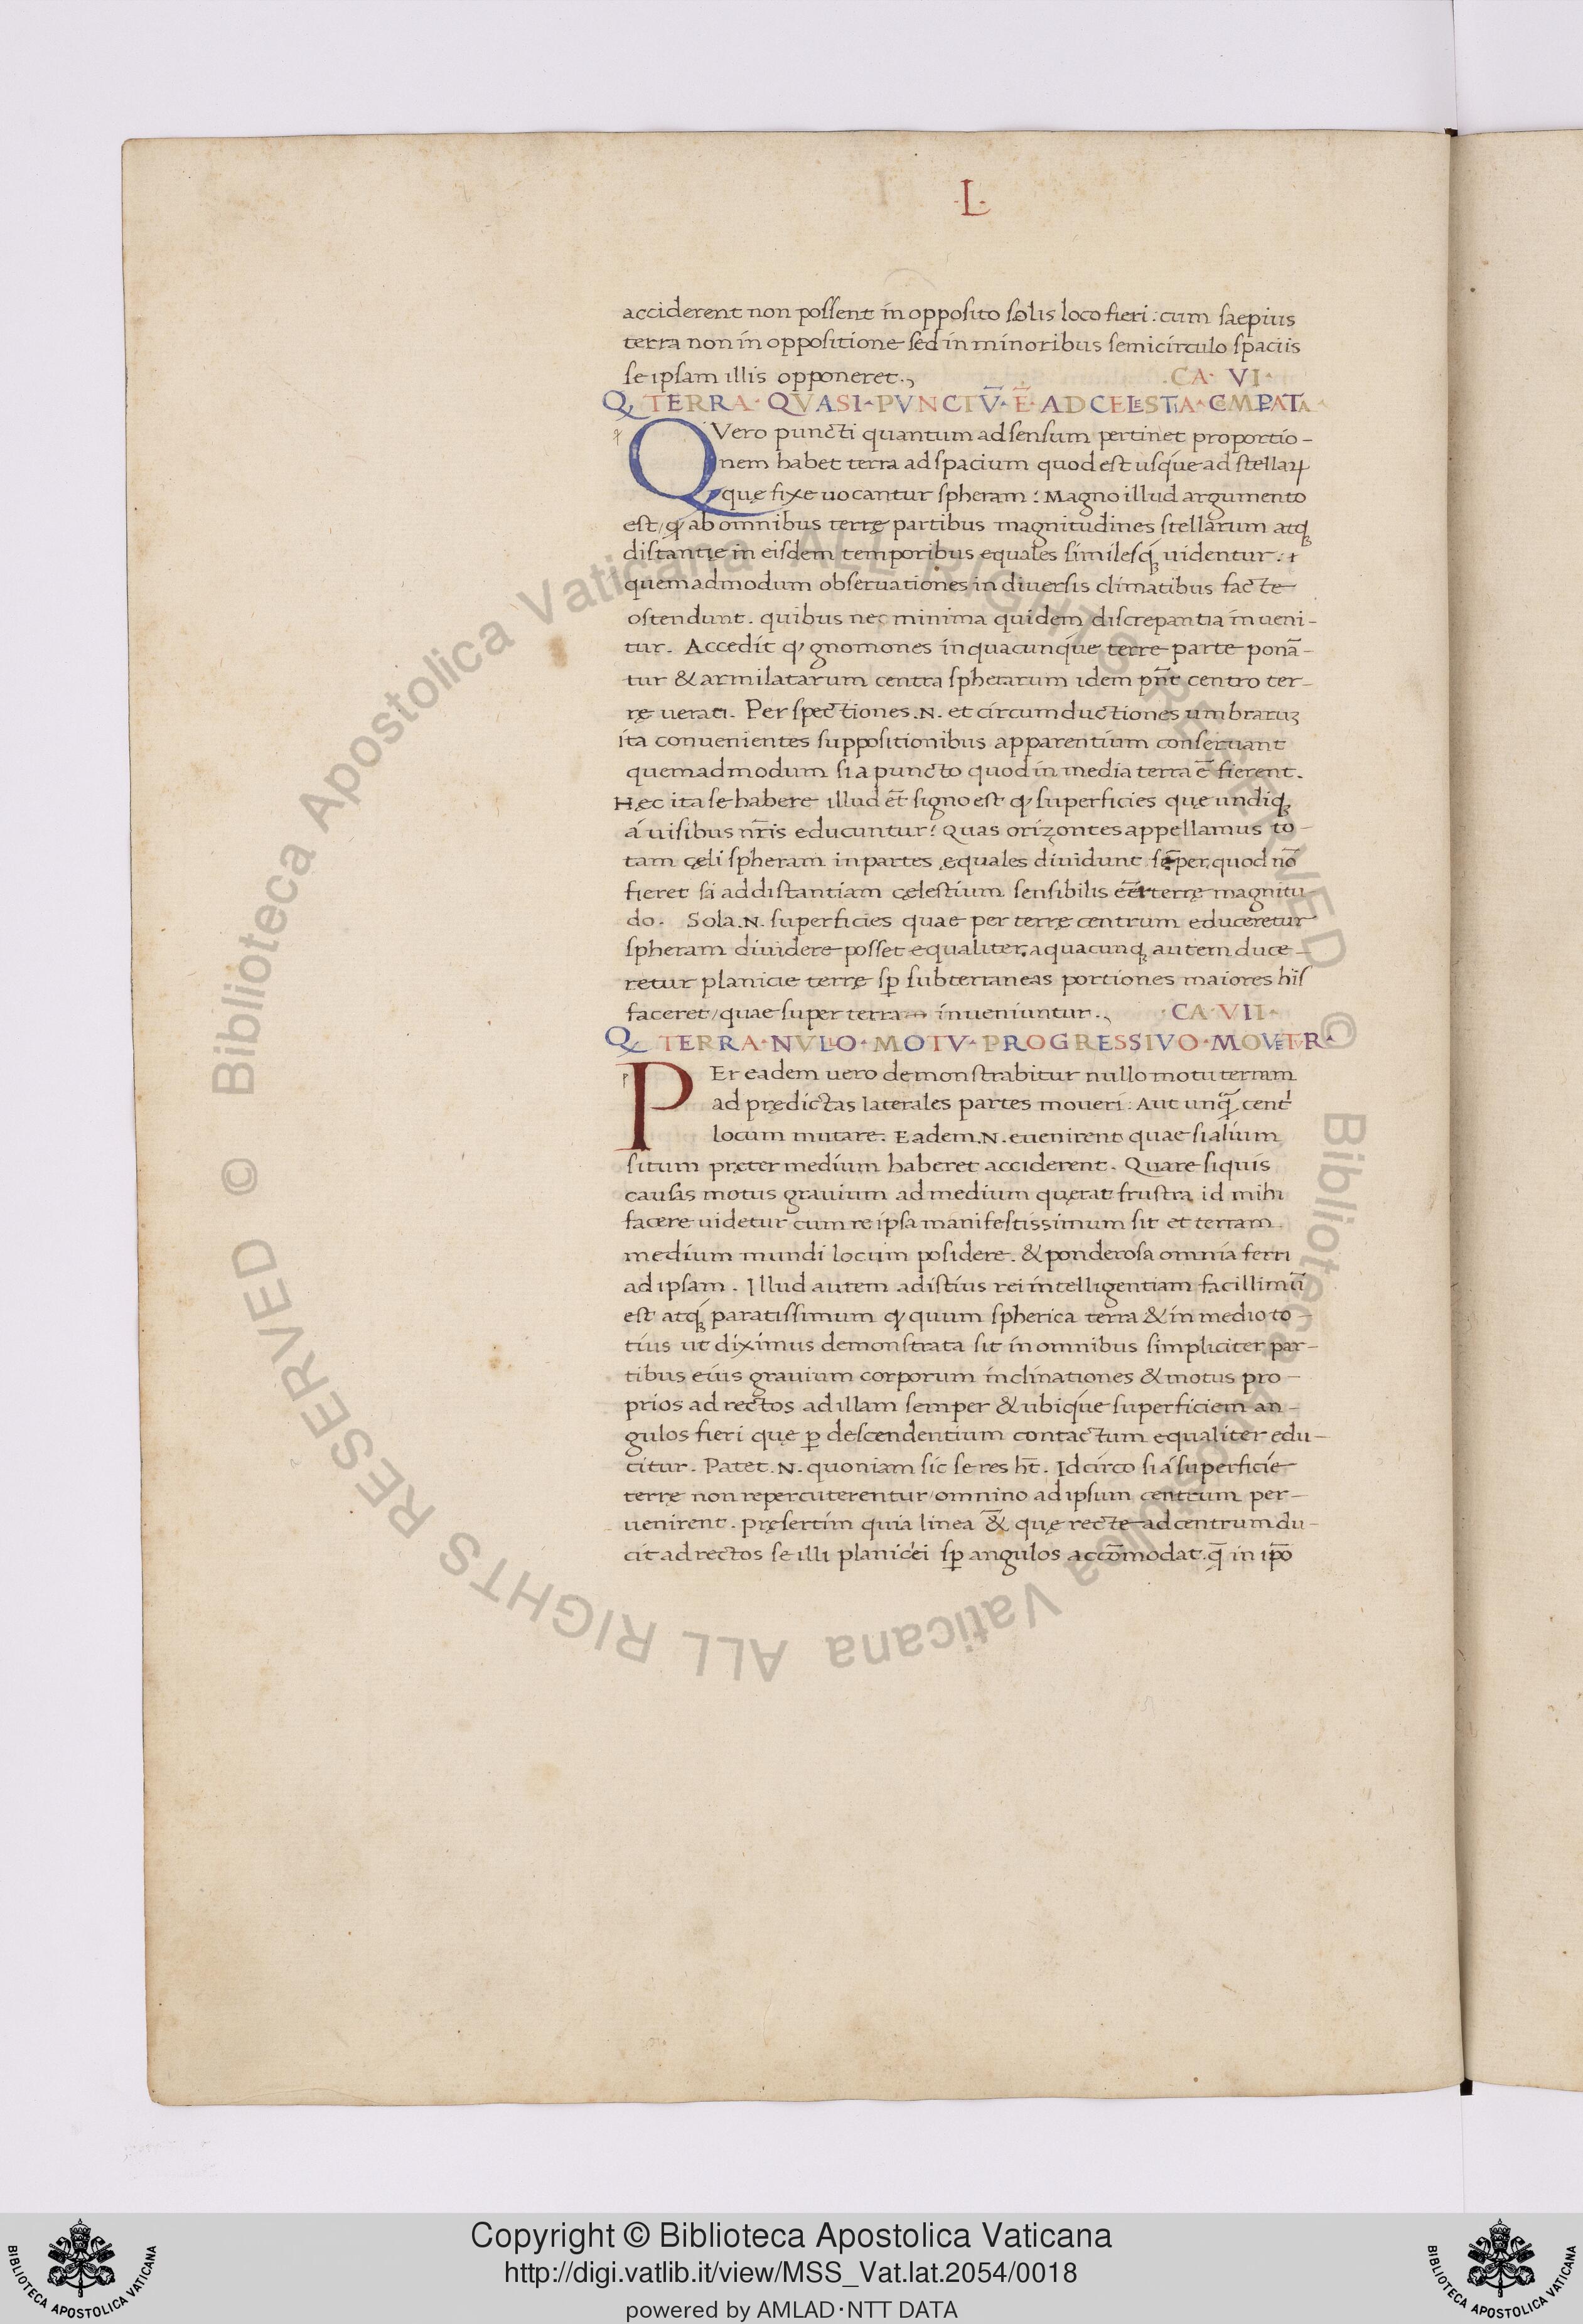 ·L·
acciderent non possent in opposito solis loco fieri: cum saepius
terra non in oppositione sed in minoribus semicirculo spaciis
se ipsam illis opponeret.,
·CA· VI·
Q TERRA· QVASI·PVNCTV̄·Ē·AD CELESTIA·COMPATA·
QVero puncti quantum ad sensum pertinet proportio-
nem habet terra ad spacium quod est usque ad stellaꝝ
quę fixe uocantur spheram: Magno illud argumento
est/ ꝙ ab omnibus terrę partibus magnitudines stellarum atqꝫ
distantię in eisdem temporibus equales similesqꝫ uidentur:
quemadmodum obseruationes in diuersis climatibus facte
ostendunt. quibus nec minima quidem discrepantia inueni-
tur. Accedit ꝙ gnomones in quacunque terre parte ponā-
tur & armilatarum centra spherarum idem pñt centro ter-
rę uerati. Per spectiones .N. et circumductiones umbraruꝫ
ita conuenientes suppositionibus apparentium conseruant
quemadmodum si a puncto quod in media terra ē fierent.
Hęc ita se habere illud et̄ signo est ꝙ superficies quę undiqꝫ
á uisibus nr̄is educuntur: Quas orizontes appellamus to-
tam cęli spheram in partes ęquales diuidunt sēper, quod nō
fieret si ad distantiam cęlestium sensibilis terrę magnitu-
do. Sola .N. superficies quae per terrę centrum educeretur
spheram diuidere posset equaliter. a quacunqꝫ autem duce-
retur planicie terrę sꝑ subterraneas portiones maiores hīs
faceret/ quae super terram inueniuntur.,
·CA·VII·
Q TERRA·NVLLO·MOTV·PROGRESSIVO·MOVETVR·
PEr eadem uero demonstrabitur nullo motu terram
ad prędictas laterales partes moueri: Aut unq̄ cent'
locum mutare. Eadem .N. euenirent quae si alium
situm pręter medium haberet acciderent. Quare siquis
causas motus grauium ad medium quęrat frustra id mihi
facere uidetur cum re ipsa manifestissimum sit et terram
medium mundi locum posidere. & ponderosa omnia ferri
ad ipsam. Illud autem ad istius rei intelligentiam facillimū
est atqꝫ paratissimum ꝙ quum spherica terra & in medio to-
tius ut diximus demonstrata sit in omnibus simpliciter par-
tibus eius grauium corporum inclinationes & motus pro-
prios ad rectos ad illam semper & ubique superficiem an-
gulos fieri quę ꝑ descendentium contactum equaliter edu-
citur. Patet .N. quoniam sic se res ht̄. Idcirco si á superficie
terrę non repercuterentur/ omnino ad ipsum centrum per-
uenirent. pręsertim quia linea & quę recte ad centrum du-
cit ad rectos se illi planiciei sꝑ angulos accōmodat. q̄ in ip̄o
Copyright © Biblioteca Apostolica Vaticana
http://digi.vatlib.it/view/MSS_Vat.lat.2054/0018
powered by AMLAD·NTT DATA
BIBLIOTECA APOSTOLICA VATICANA
BIBLIOTECA APOSTOLICA VATICANA
© Biblioteca Apostolica Vaticana ALL RIGHTS RESERVED © Biblioteca Apostolica Vaticana ALL RIGHTS RESERVED